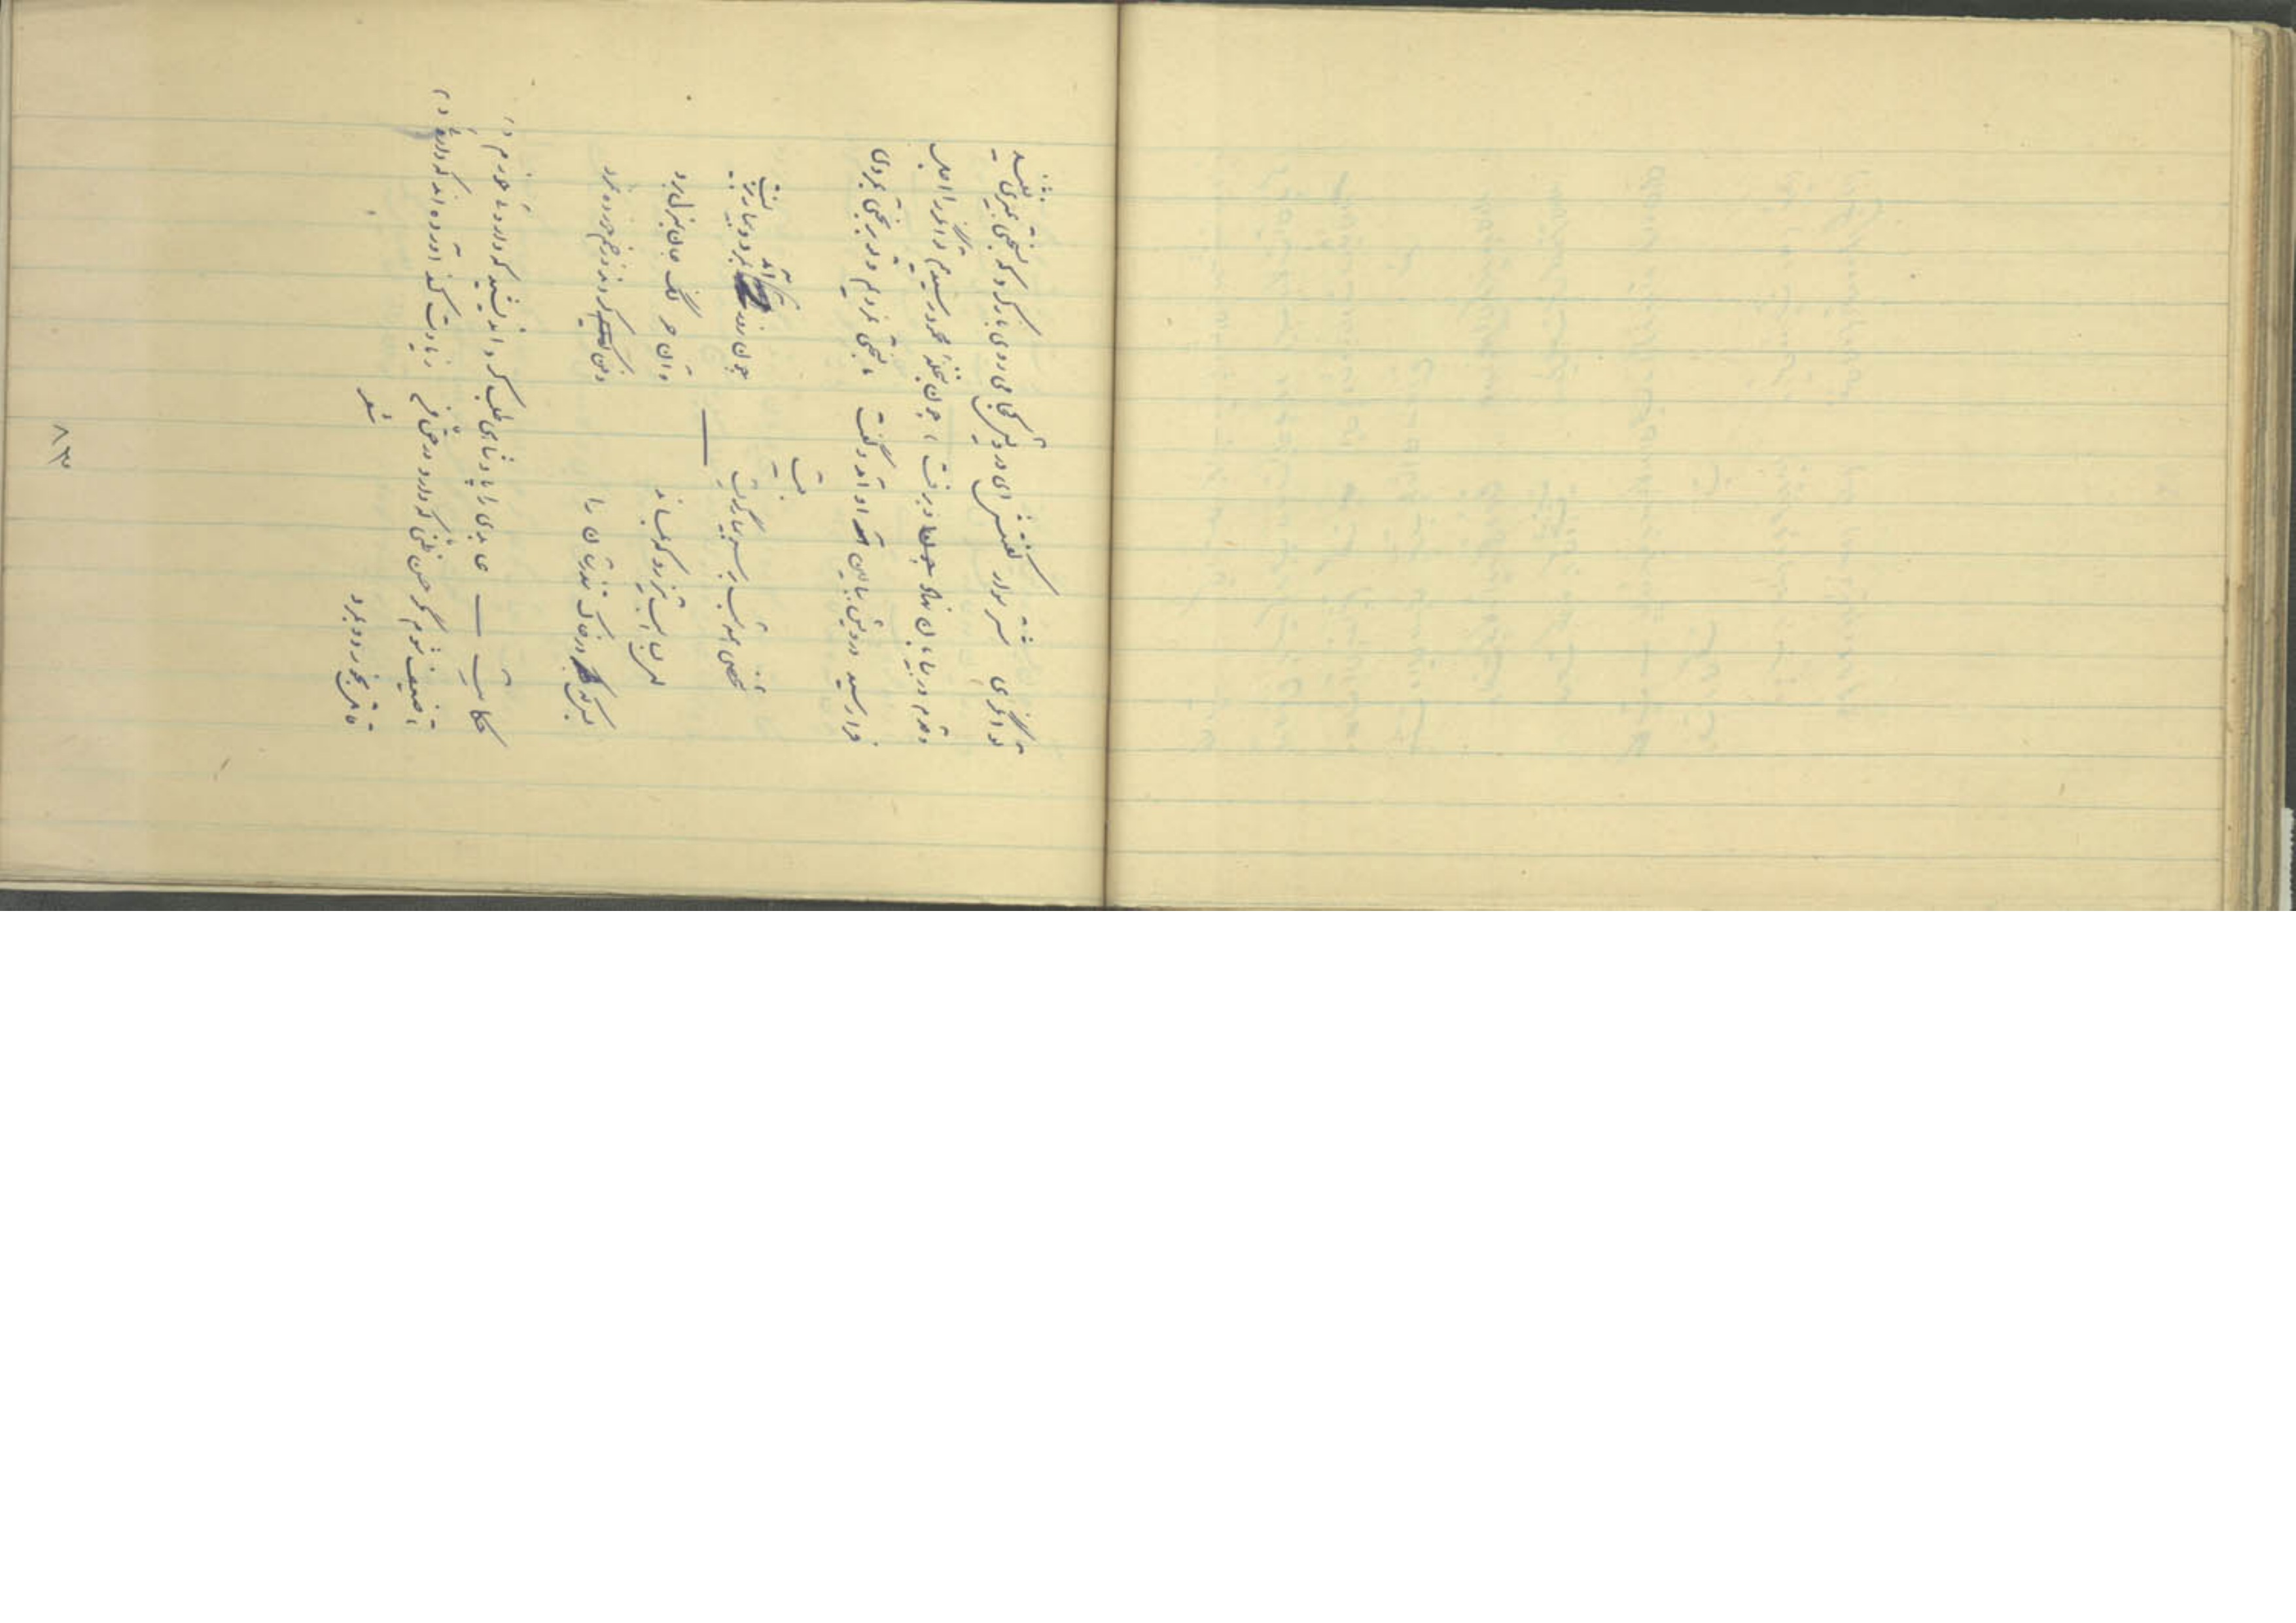 توانگری گفتش ای درویش کجا می روی باز گرد که بسختی بمیری نشنید
و قدم در بیابان نهاد و برفت ، چون بنخله محمود رسیدیم توانگر را اجل
فرا رسید درویش ببالین او آمد و گفت ما بسختی نمردیم و تو بر بختی بمردی
بیت
شخصی همه شب بر سر بیمار گریست
چون روز آمد بمرد و بیمار بزیست
ای بسا اسب تیزرو که بماند
که خر لنگ جان بمنزل برد
بس که در خاک تندرستان را
دفن کردند و زخم خورده نمرد
حکایت — عابدی را پادشاهی طلب کرد اندیشید که داروئی بخورم تا
ضعیف شوم مگر حسن ظنی که دارد در حق من زیادت کند آورده اند که داروی
شعر
قاتل بخورد و بمرد
۸۳